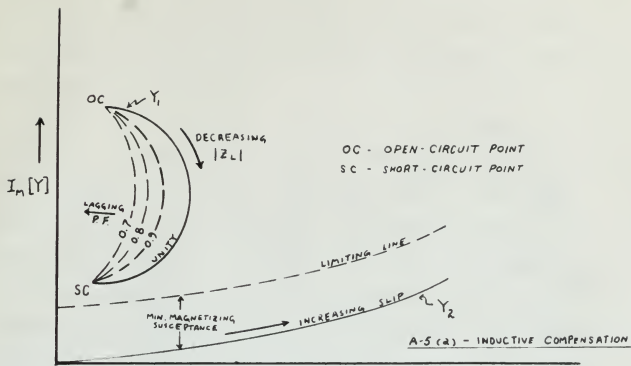 OC
Y₁
DECREASING
|Z_L|
OC - OPEN-CIRCUIT POINT
SC - SHORT-CIRCUIT POINT
I_M [Y]
LAGGING
P.F.
0.7
0.8
0.9
UNITY
SC
LIMITING LINE
MIN. MAGNETIZING
SUSCEPTANCE
INCREASING SLIP
Y₂
A-5(a) - INDUCTIVE COMPENSATION